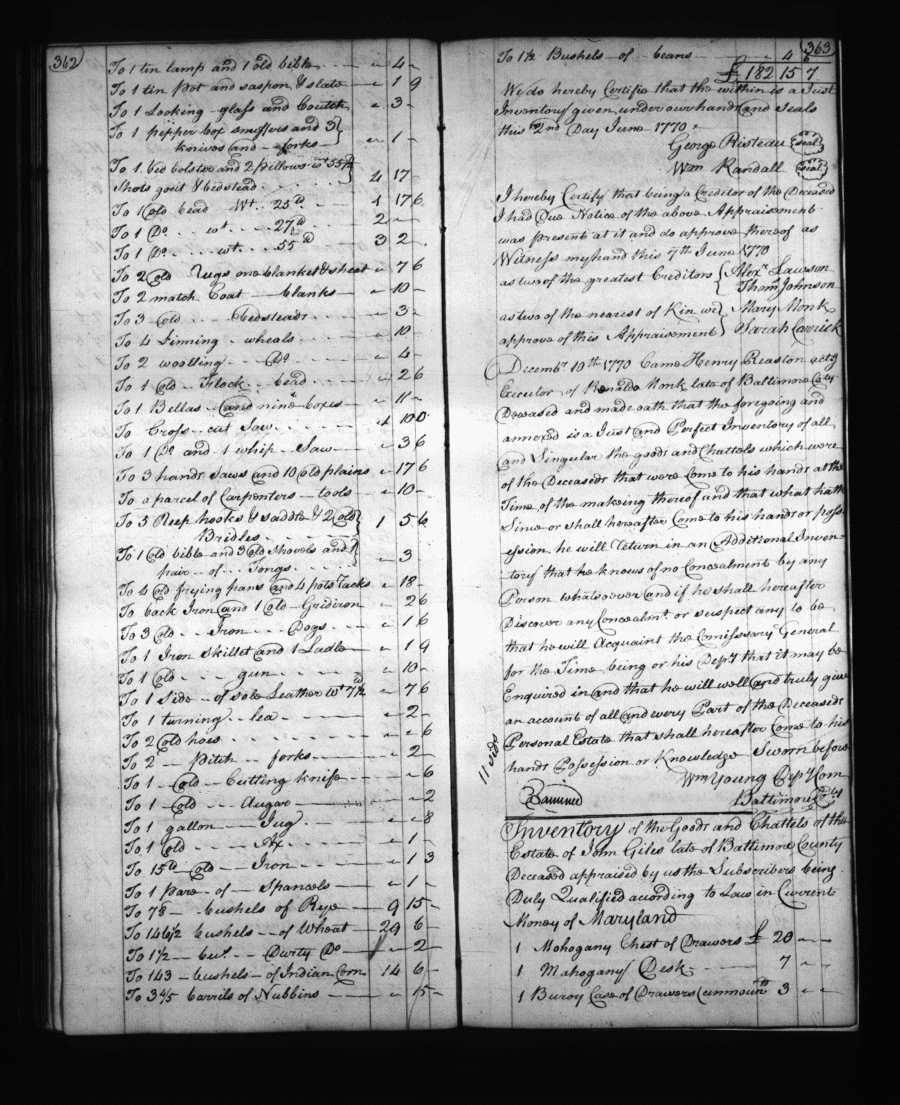 362
To 1 tin lamp and 1 old bible - 4 -
To 1 tin pot and saspon & slate - 1 9
To 1 Looking glass and Coutch - 3 -
To 1 pepper box snuffers and 3
knives and forks - 1 -
To 1 bed bolster and 2 pillows wt 55
Shots govit & bedstead 4 17 -
To 1 Old bead Wt. 25 lb 1 17 6
To 1 Do. wt. 27 1/2 lb 2 - -
To 1 Do. wt. 55 lb 3 2 -
To 2 Old Rugs one blanket & sheet - 7 6
To 2 match Coat blanks - 10 -
To 3 Old bedsteads - 3 -
To 4 Linning wheals - 10 -
To 2 woolling Do - 4 -
To 1 Old Flock bead - 2 6
To 1 Bellas and nine boxes - 11 -
To Cross cut Saw 1 10 0
To 1 Do and 1 whip Saw - 3 6
To 3 hands Saws and 10 old plains - 17 6
To a parcel of Carpenters tools - 10 -
To 5 Reep hooks & saddle & 2 Old
Bridles 1 5 6
To 1 Old bible and 3 Old Shovels and
pair of Tongs - 3 -
To 4 Old frying pans and 4 pots racks - 18 -
To back Iron and 1 Old Gridiron - 2 6
To 3 Old Iron Dogs - 1 6
To 1 Iron Skillet and 1 Ladle - 1 9
To 1 Old gun - 10 -
To 1 Side of sole Leather wt 7 1/2 lb - 7 6
To 1 turning lea - 2 -
To 2 Old hoes - - 6
To 2 pitch forks - 2 -
To 1 Old Cutting knife - - 6
To 1 Old Augar - - 2
To 1 gallon Jug - - 8
To 1 Old Ax - 1 -
To 15 lb Old Iron - 1 3
To 1 pare of Spancels - 1 -
To 78 bushels of Rye 9 15 -
To 146 1/2 bushels of Wheat 29 6 -
To 1 1/2 bus. Durty Do - - 2
To 143 bushels of Indian Corn 14 6 -
To 3 4/5 barrils of Nubbins - 15 -
363
To 1 1/2 Bushels of beans - 4 6
£ 182 15 7
We do hereby Certifie that the within is a Just
Inventory given under our hands and Seals
this 2nd Day June 1770
George Risteau seal
Wm Randall seal
I hereby Certify that being a Creditor of the Deceased
I had Due Notice of the above Appraisement
was present at it and do approve thereof as
Witness my hand this 7th June 1770
as two of the greatest Creditors { Alexr Lawson
Thoms Johnson
as two of the nearest of Kin we } Mary Monk
approve of this Appraisement } Sarah Carrick
Decembr 10th 1770 Came Henry Reaston actg
Executor of Renaldo Monk late of Baltimore Coty
Deceased and made oath that the foregoing and
annexed is a Just and Perfect Inventory of all
and Singular the goods and Chattels which were
of the Deceaseds that were Come to his hands at the
Time of the makeing thereof and that what hath
Since or shall hereafter Come to his hands or poss-
ession he will return in an Additional Inven-
tory that he knows of no Concealment by any
Person whatsoever and if he shall hereafter
Discover any Concealmt. or suspect any to be
that he will Acquaint the Comissary General
for the Time being or his Depy that it may be
Enquired in and that he will well and truly give
an account of all and every Part of the Deceaseds
Personal Estate that shall hereafter Come to his
hands Possession or Knowledge Sworn before
Wm Young Depy Com
Baltimore Coty
11 sids
Examined
Inventory of the Goods and Chattels of the
Estate of John Giles late of Baltimore County
Deceased appraised by us the Subscribers being
Duly Qualified according to Law in Current
Money of Maryland
1 Mohogany Chest of Drawers £ 20 - -
1 Mahogany Desk 7 - -
1 Buroy Case of Drawers (unmountd 3 - -